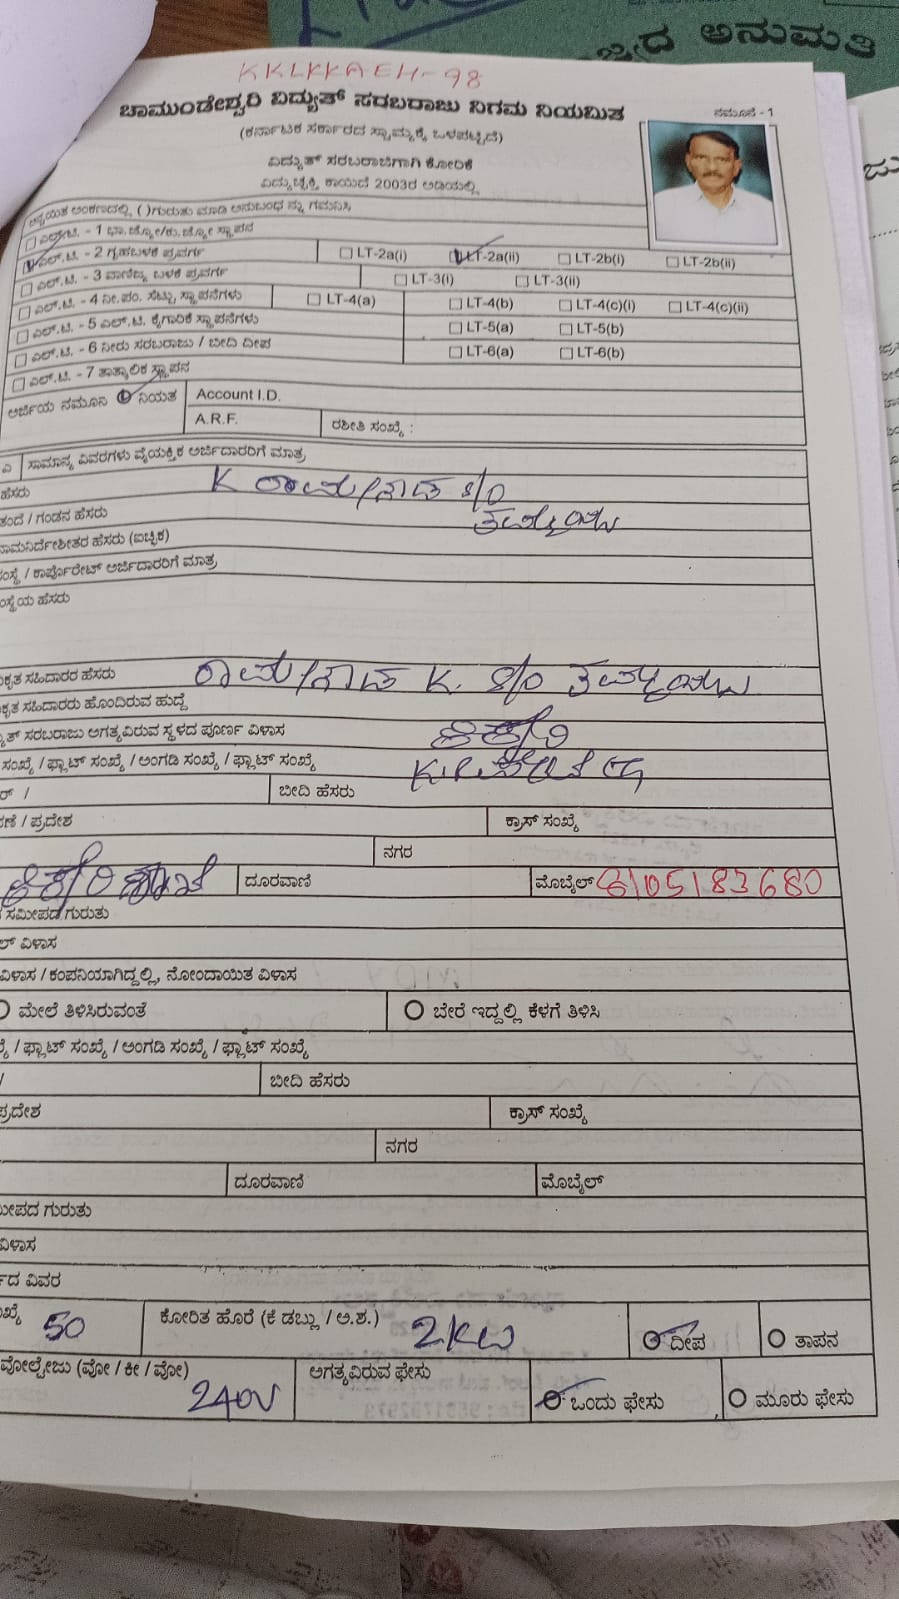 ದ ಅನುಮತಿ
KKLKKAEH-98
ಚಾಮುಂಡೇಶ್ವರಿ ವಿದ್ಯುತ್ ಸರಬರಾಜು ನಿಗಮ ನಿಯಮಿತ
ನಮೂನೆ - 1
(ಕರ್ನಾಟಕ ಸರ್ಕಾರದ ಸ್ವಾಮ್ಯಕ್ಕೆ ಒಳಪಟ್ಟಿದೆ)
ವಿದ್ಯುತ್ ಸರಬರಾಜಿಗಾಗಿ ಕೋರಿಕೆ
ವಿದ್ಯುಚ್ಛಕ್ತಿ ಕಾಯಿದೆ 2003ರ ಅಡಿಯಲ್ಲಿ
ಅನ್ವಯಿತ ಅಂಕಣದಲ್ಲಿ ( )ಗುರುತು ಮಾಡಿ ಅನುಬಂಧ ನ್ನು ಗಮನಿಸಿ
ಎಲ್.ಟಿ. - 1 ಭಾ.ಜ್ಯೋ/ಕು.ಜ್ಯೋ ಸ್ಥಾಪನ
ಎಲ್.ಟಿ. - 2 ಗೃಹಬಳಕೆ ಪ್ರವರ್ಗ LT-2a(i) LT-2a(ii) LT-2b(i) LT-2b(ii)
ಎಲ್.ಟಿ. - 3 ವಾಣಿಜ್ಯ ಬಳಕೆ ಪ್ರವರ್ಗ LT-3(i) LT-3(ii)
ಎಲ್.ಟಿ. - 4 ನೀ.ಪಂ. ಸೆಟ್ಟು ಸ್ಥಾಪನೆಗಳು LT-4(a) LT-4(b) LT-4(c)(i) LT-4(c)(ii)
ಎಲ್.ಟಿ. - 5 ಎಲ್.ಟಿ. ಕೈಗಾರಿಕೆ ಸ್ಥಾಪನೆಗಳು LT-5(a) LT-5(b)
ಎಲ್.ಟಿ. - 6 ನೀರು ಸರಬರಾಜು / ಬೀದಿ ದೀಪ LT-6(a) LT-6(b)
ಎಲ್.ಟಿ. - 7 ತಾತ್ಕಾಲಿಕ ಸ್ಥಾಪನ
ಅರ್ಜಿಯ ನಮೂನಿ ನಿಯತ Account I.D.
A.R.F. ರಶೀತಿ ಸಂಖ್ಯೆ :
ಎ ಸಾಮಾನ್ಯ ವಿವರಗಳು ವೈಯಕ್ತಿಕ ಅರ್ಜಿದಾರರಿಗೆ ಮಾತ್ರ
ಹೆಸರು K S/O
ತಂದೆ / ಗಂಡನ ಹೆಸರು
ನಾಮನಿರ್ದೇಶಿತರ ಹೆಸರು (ಐಚ್ಛಿಕ)
ಸಂಸ್ಥೆ / ಕಾರ್ಪೊರೇಟ್ ಅರ್ಜಿದಾರರಿಗೆ ಮಾತ್ರ
ಸಂಸ್ಥೆಯ ಹೆಸರು
ಕೃತ ಸಹಿದಾರರ ಹೆಸರು K. S/O
ಕೃತ ಸಹಿದಾರರು ಹೊಂದಿರುವ ಹುದ್ದೆ
ತ್ ಸರಬರಾಜು ಅಗತ್ಯವಿರುವ ಸ್ಥಳದ ಪೂರ್ಣ ವಿಳಾಸ
ಸಂಖ್ಯೆ / ಫ್ಲಾಟ್ ಸಂಖ್ಯೆ / ಅಂಗಡಿ ಸಂಖ್ಯೆ / ಫ್ಲಾಟ್ ಸಂಖ್ಯೆ
ರ್ / ಬೀದಿ ಹೆಸರು
ಣೆ / ಪ್ರದೇಶ ಕ್ರಾಸ್ ಸಂಖ್ಯೆ
ನಗರ
ದೂರವಾಣಿ ಮೊಬೈಲ್ 6105183680
ಸಮೀಪದ ಗುರುತು
ಲ್ ವಿಳಾಸ
ವಿಳಾಸ / ಕಂಪನಿಯಾಗಿದ್ದಲ್ಲಿ, ನೋಂದಾಯಿತ ವಿಳಾಸ
ಮೇಲೆ ತಿಳಿಸಿರುವಂತೆ ಬೇರೆ ಇದ್ದಲ್ಲಿ ಕೆಳಗೆ ತಿಳಿಸಿ
/ ಫ್ಲಾಟ್ ಸಂಖ್ಯೆ / ಅಂಗಡಿ ಸಂಖ್ಯೆ / ಫ್ಲಾಟ್ ಸಂಖ್ಯೆ
/ ಬೀದಿ ಹೆಸರು
ಪ್ರದೇಶ ಕ್ರಾಸ್ ಸಂಖ್ಯೆ
ನಗರ
ದೂರವಾಣಿ ಮೊಬೈಲ್
ಮೀಪದ ಗುರುತು
ವಿಳಾಸ
ದ ವಿವರ
50 ಕೋರಿತ ಹೊರೆ (ಕೆ ಡಬ್ಲ್ಯು / ಅ.ಶ.) 2KW ದೀಪ ತಾಪನ
ವೋಲ್ಟೇಜು (ವೋ / ಕೀ / ವೋ) 240V ಅಗತ್ಯವಿರುವ ಫೇಸು ಒಂದು ಫೇಸು ಮೂರು ಫೇಸು